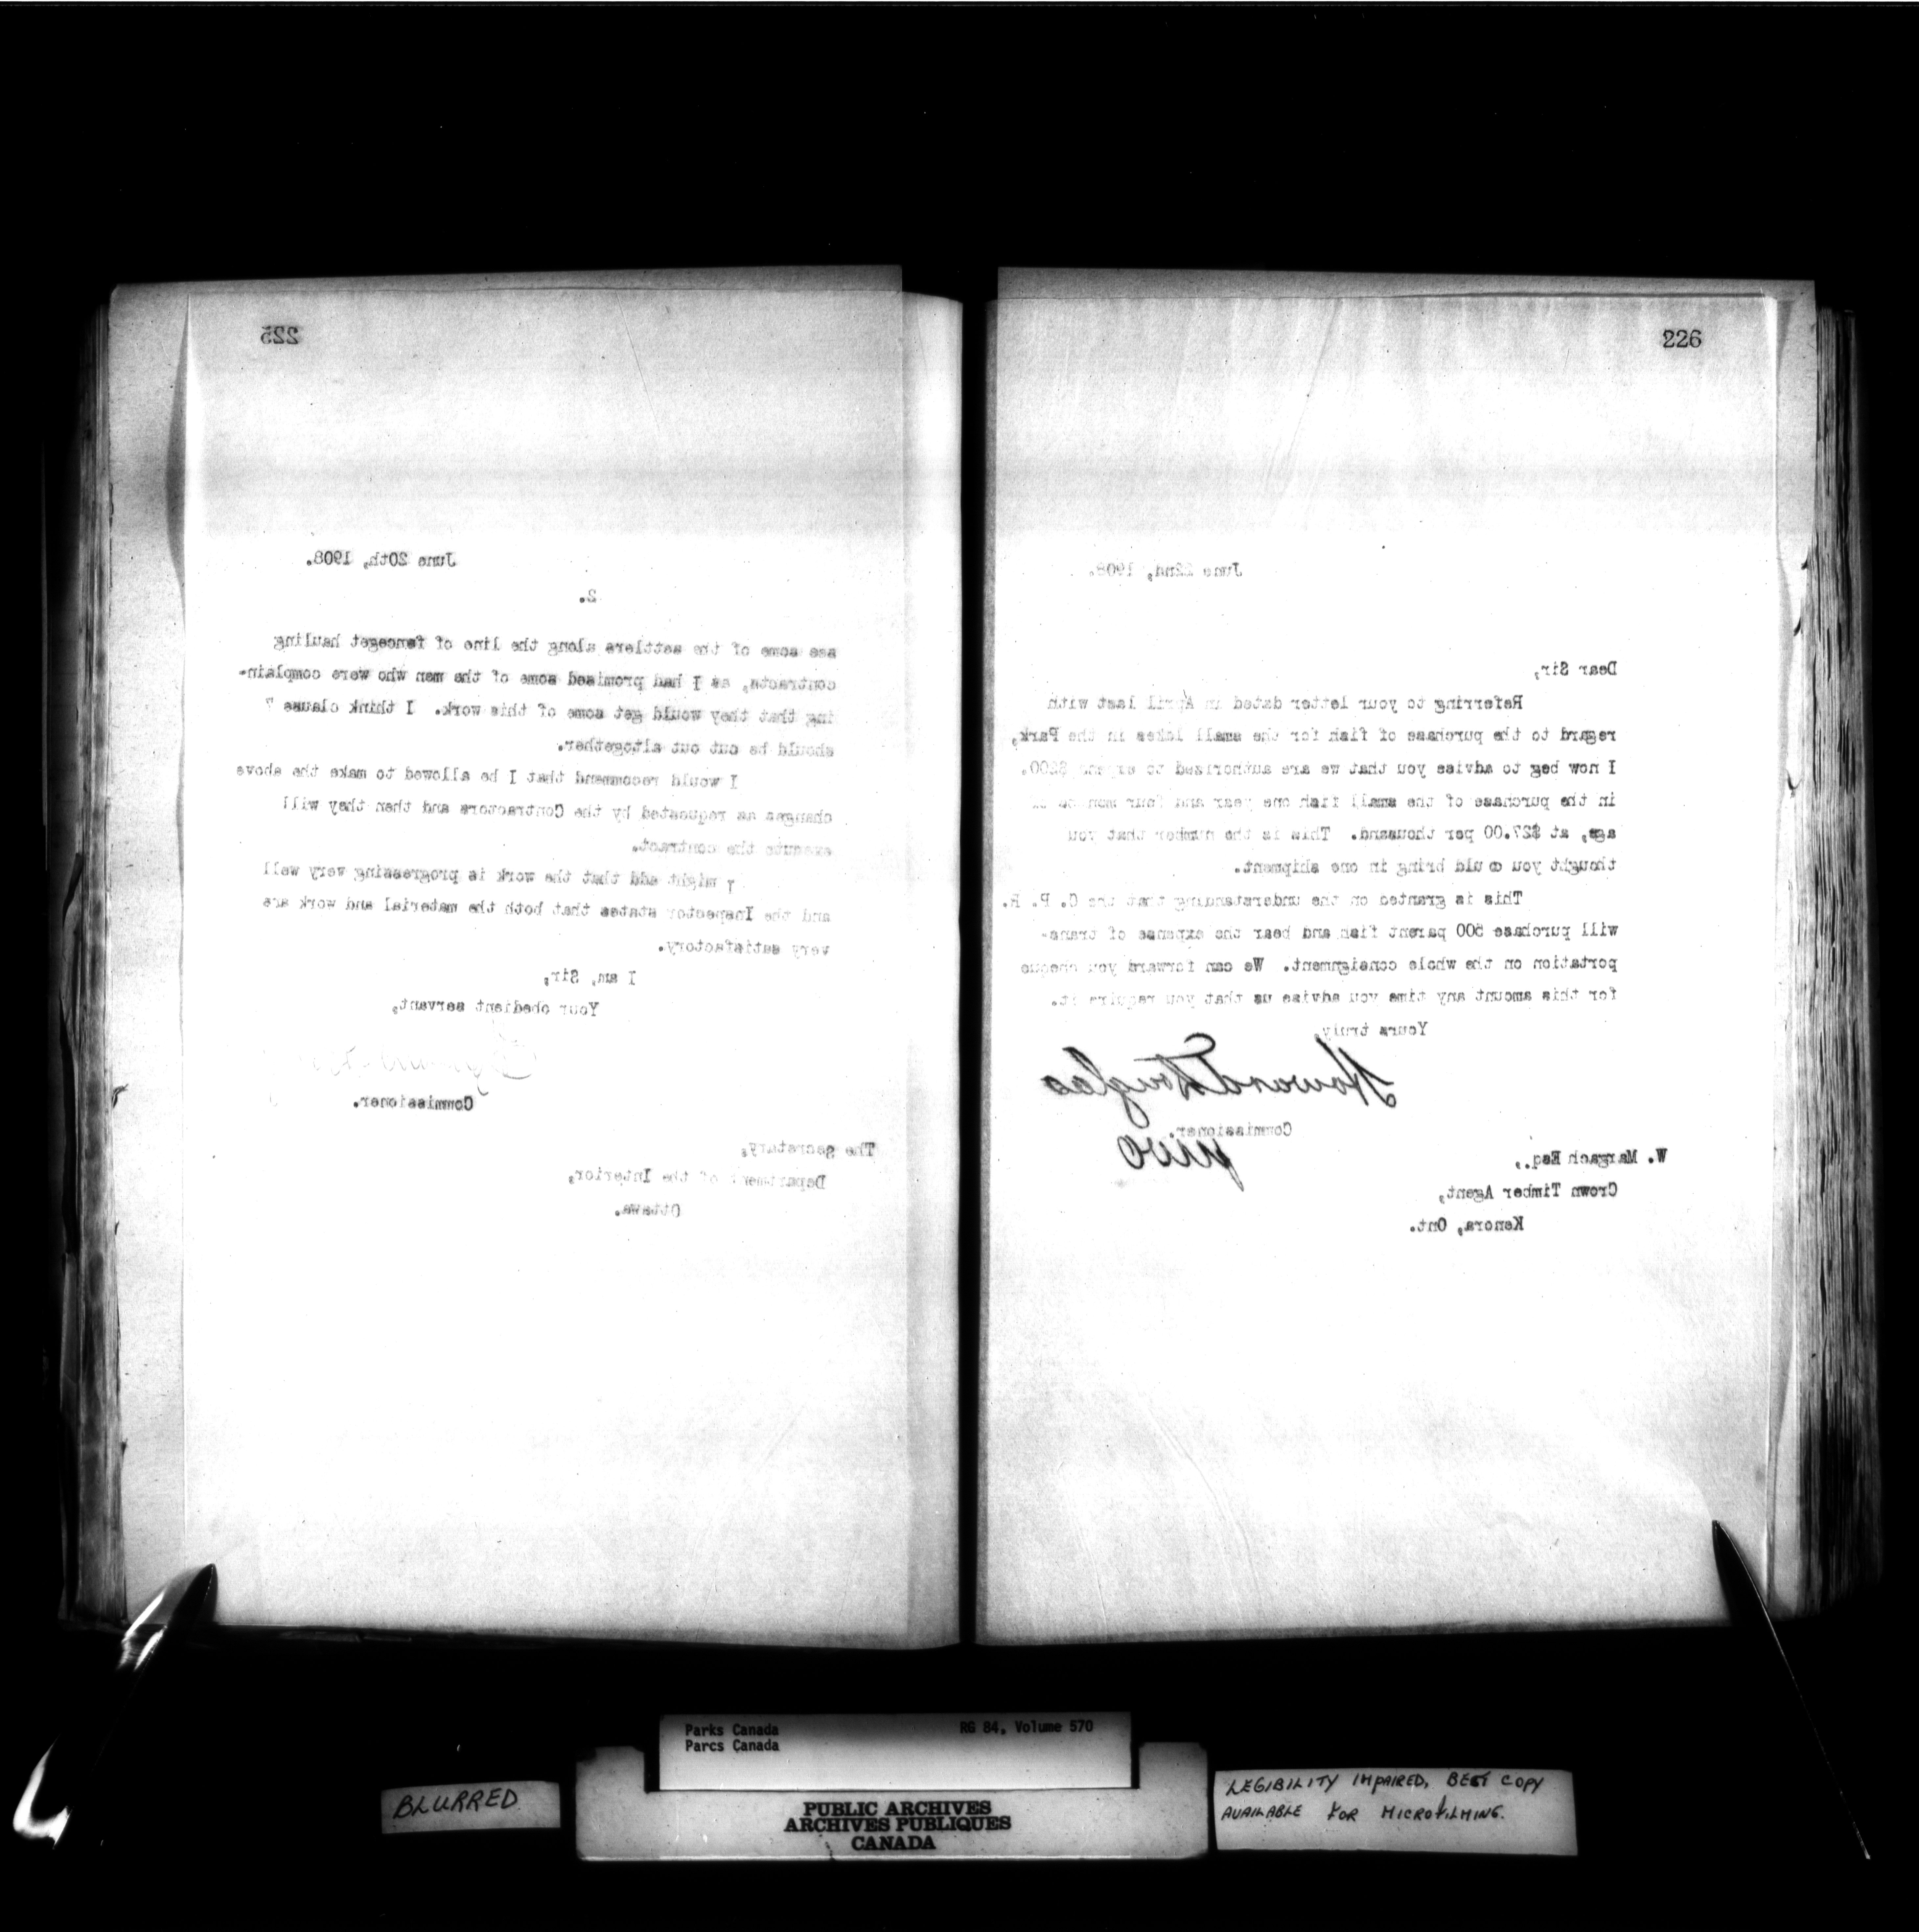 225
June 20th, 1908.
2.
see some of the settlers along the line of fenceget hauling
contracts, as I had promised some of the men who were complain-
ing that they would get some of this work. I think clause 7
should be cut out altogether.
I would recommend that I be allowed to make the above
changes as requested by the Contractors and then they will
execute the contract.
I might add that the work is progressing very well
and the Inspector states that both the material and work are
very satisfactory.
I am, Sir,
Your obedient servant,
Commissioner.
The Secretary,
Department of the Interior,
Ottawa.
226
June 22nd, 1908.
Dear Sir,
Referring to your letter dated in April last with
regard to the purchase of fish for the small lakes in the Park,
I now beg to advise you that we are authorized to expend $200.
in the purchase of the small fish one year and four months
age, at $27.00 per thousand. This is the number that you
thought you could bring in one shipment.
This is granted on the understanding that the C. P. R.
will purchase 500 parent fish and bear the expense of trans-
portation on the whole consignment. We can forward you cheque
for this amount any time you advise us that you require it.
Yours truly,
Howard Douglas
Commissioner.
W. Margach Esq.,
Crown Timber Agent,
Kenora, Ont.
Parks Canada
Parcs Canada
RG 84, Volume 570
BLURRED
PUBLIC ARCHIVES
ARCHIVES PUBLIQUES
CANADA
LEGIBILITY IMPAIRED, BEST COPY
AVAILABLE FOR MICROFILMING.